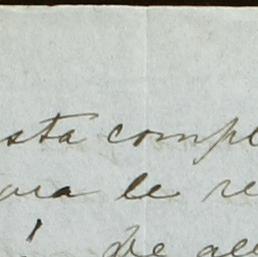 sta comple
ora le re
De all